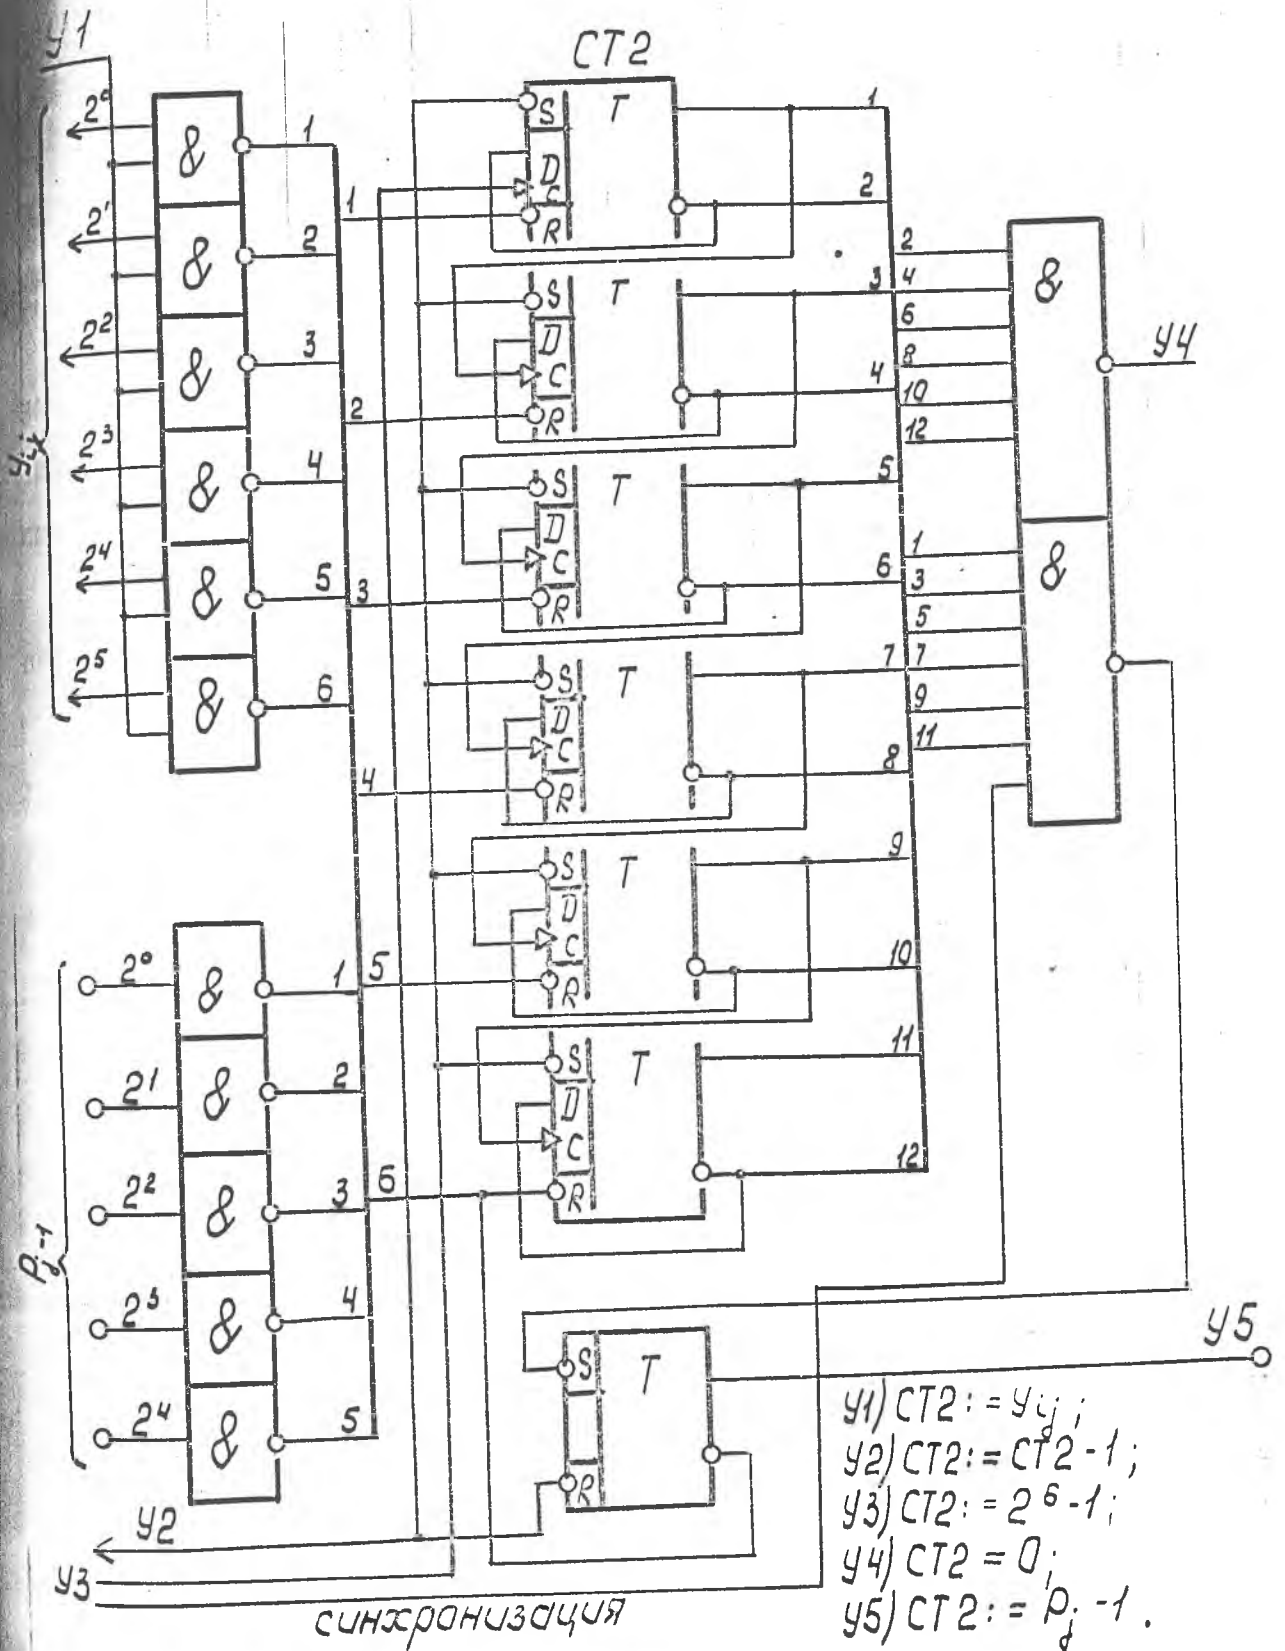 У1
СТ2
2⁰
&
1
2¹
&
2
2²
&
3
2³
&
4
2⁴
&
5
2⁵
&
6
Уij
1
2
3
4
5
6
S
D
C
R
T
1
2
S
D
C
R
T
3
4
S
D
C
R
T
5
6
S
D
C
R
T
7
8
S
D
C
R
T
9
10
S
D
C
R
T
11
12
2
4
6
8
10
12
&
У4
1
3
5
7
9
11
&
2⁰
&
1
2¹
&
2
2²
&
3
2³
&
4
2⁴
&
5
Pj-1
S
R
T
У5
У2
У3
синхронизация
У1) СТ2: = Уij;
У2) СТ2: = СТ2-1;
У3) СТ2: = 2⁶-1;
У4) СТ2 = 0;
У5) СТ2: = Pj-1.